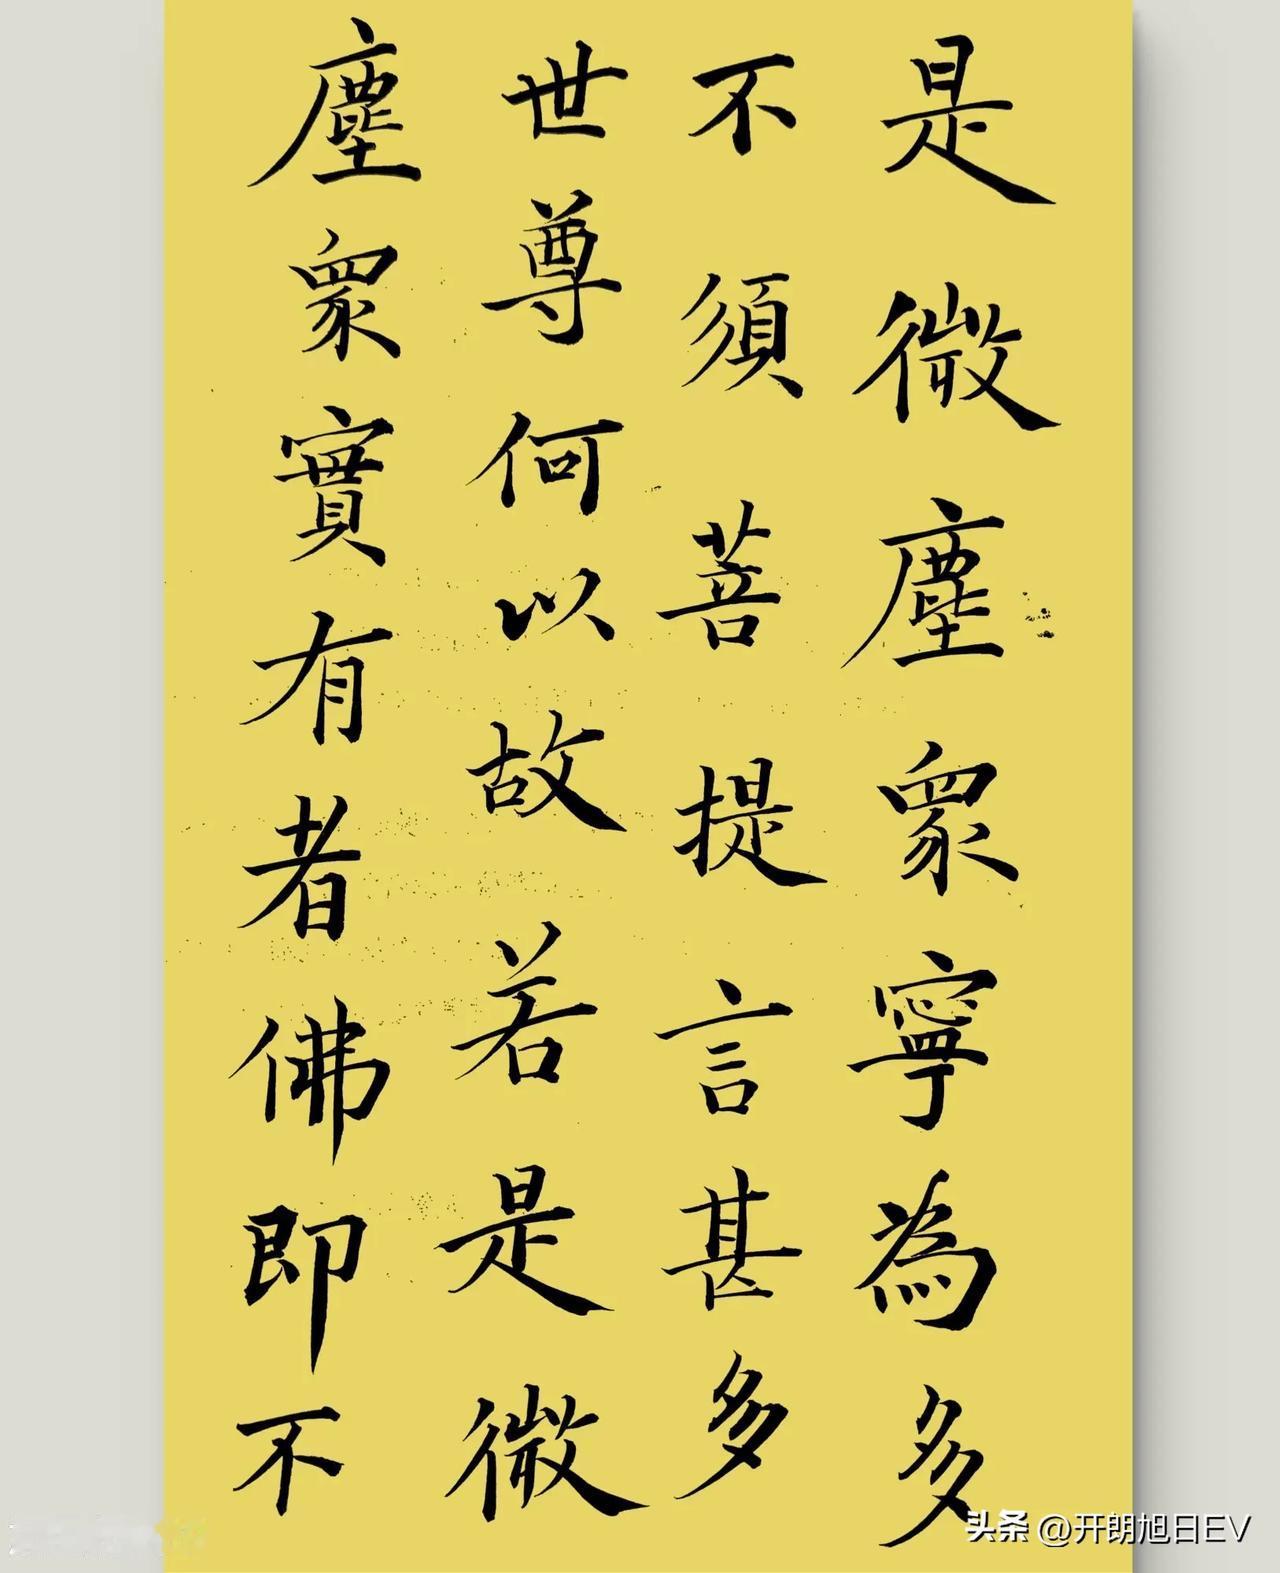 是微塵眾寧為多
不須菩提言甚多
世尊何以故若是微
塵眾實有者佛即不
头条 @开朗旭日EV